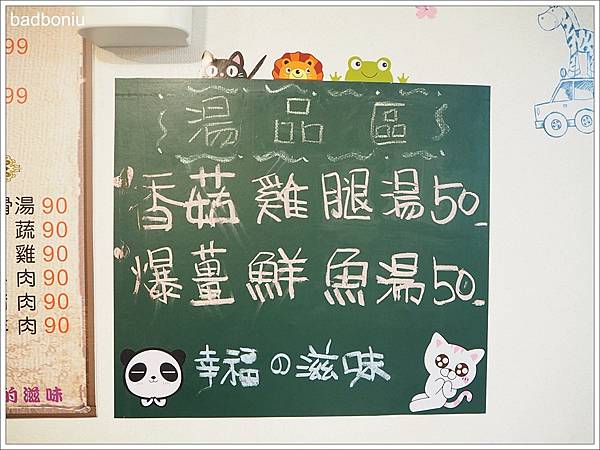 badboniu
99
99
湯 90
蔬 90
雞 90
肉 90
肉 90
肉 90
的滋味
湯品區
香菇雞腿湯50
爆薑鮮魚湯50
幸福の滋味